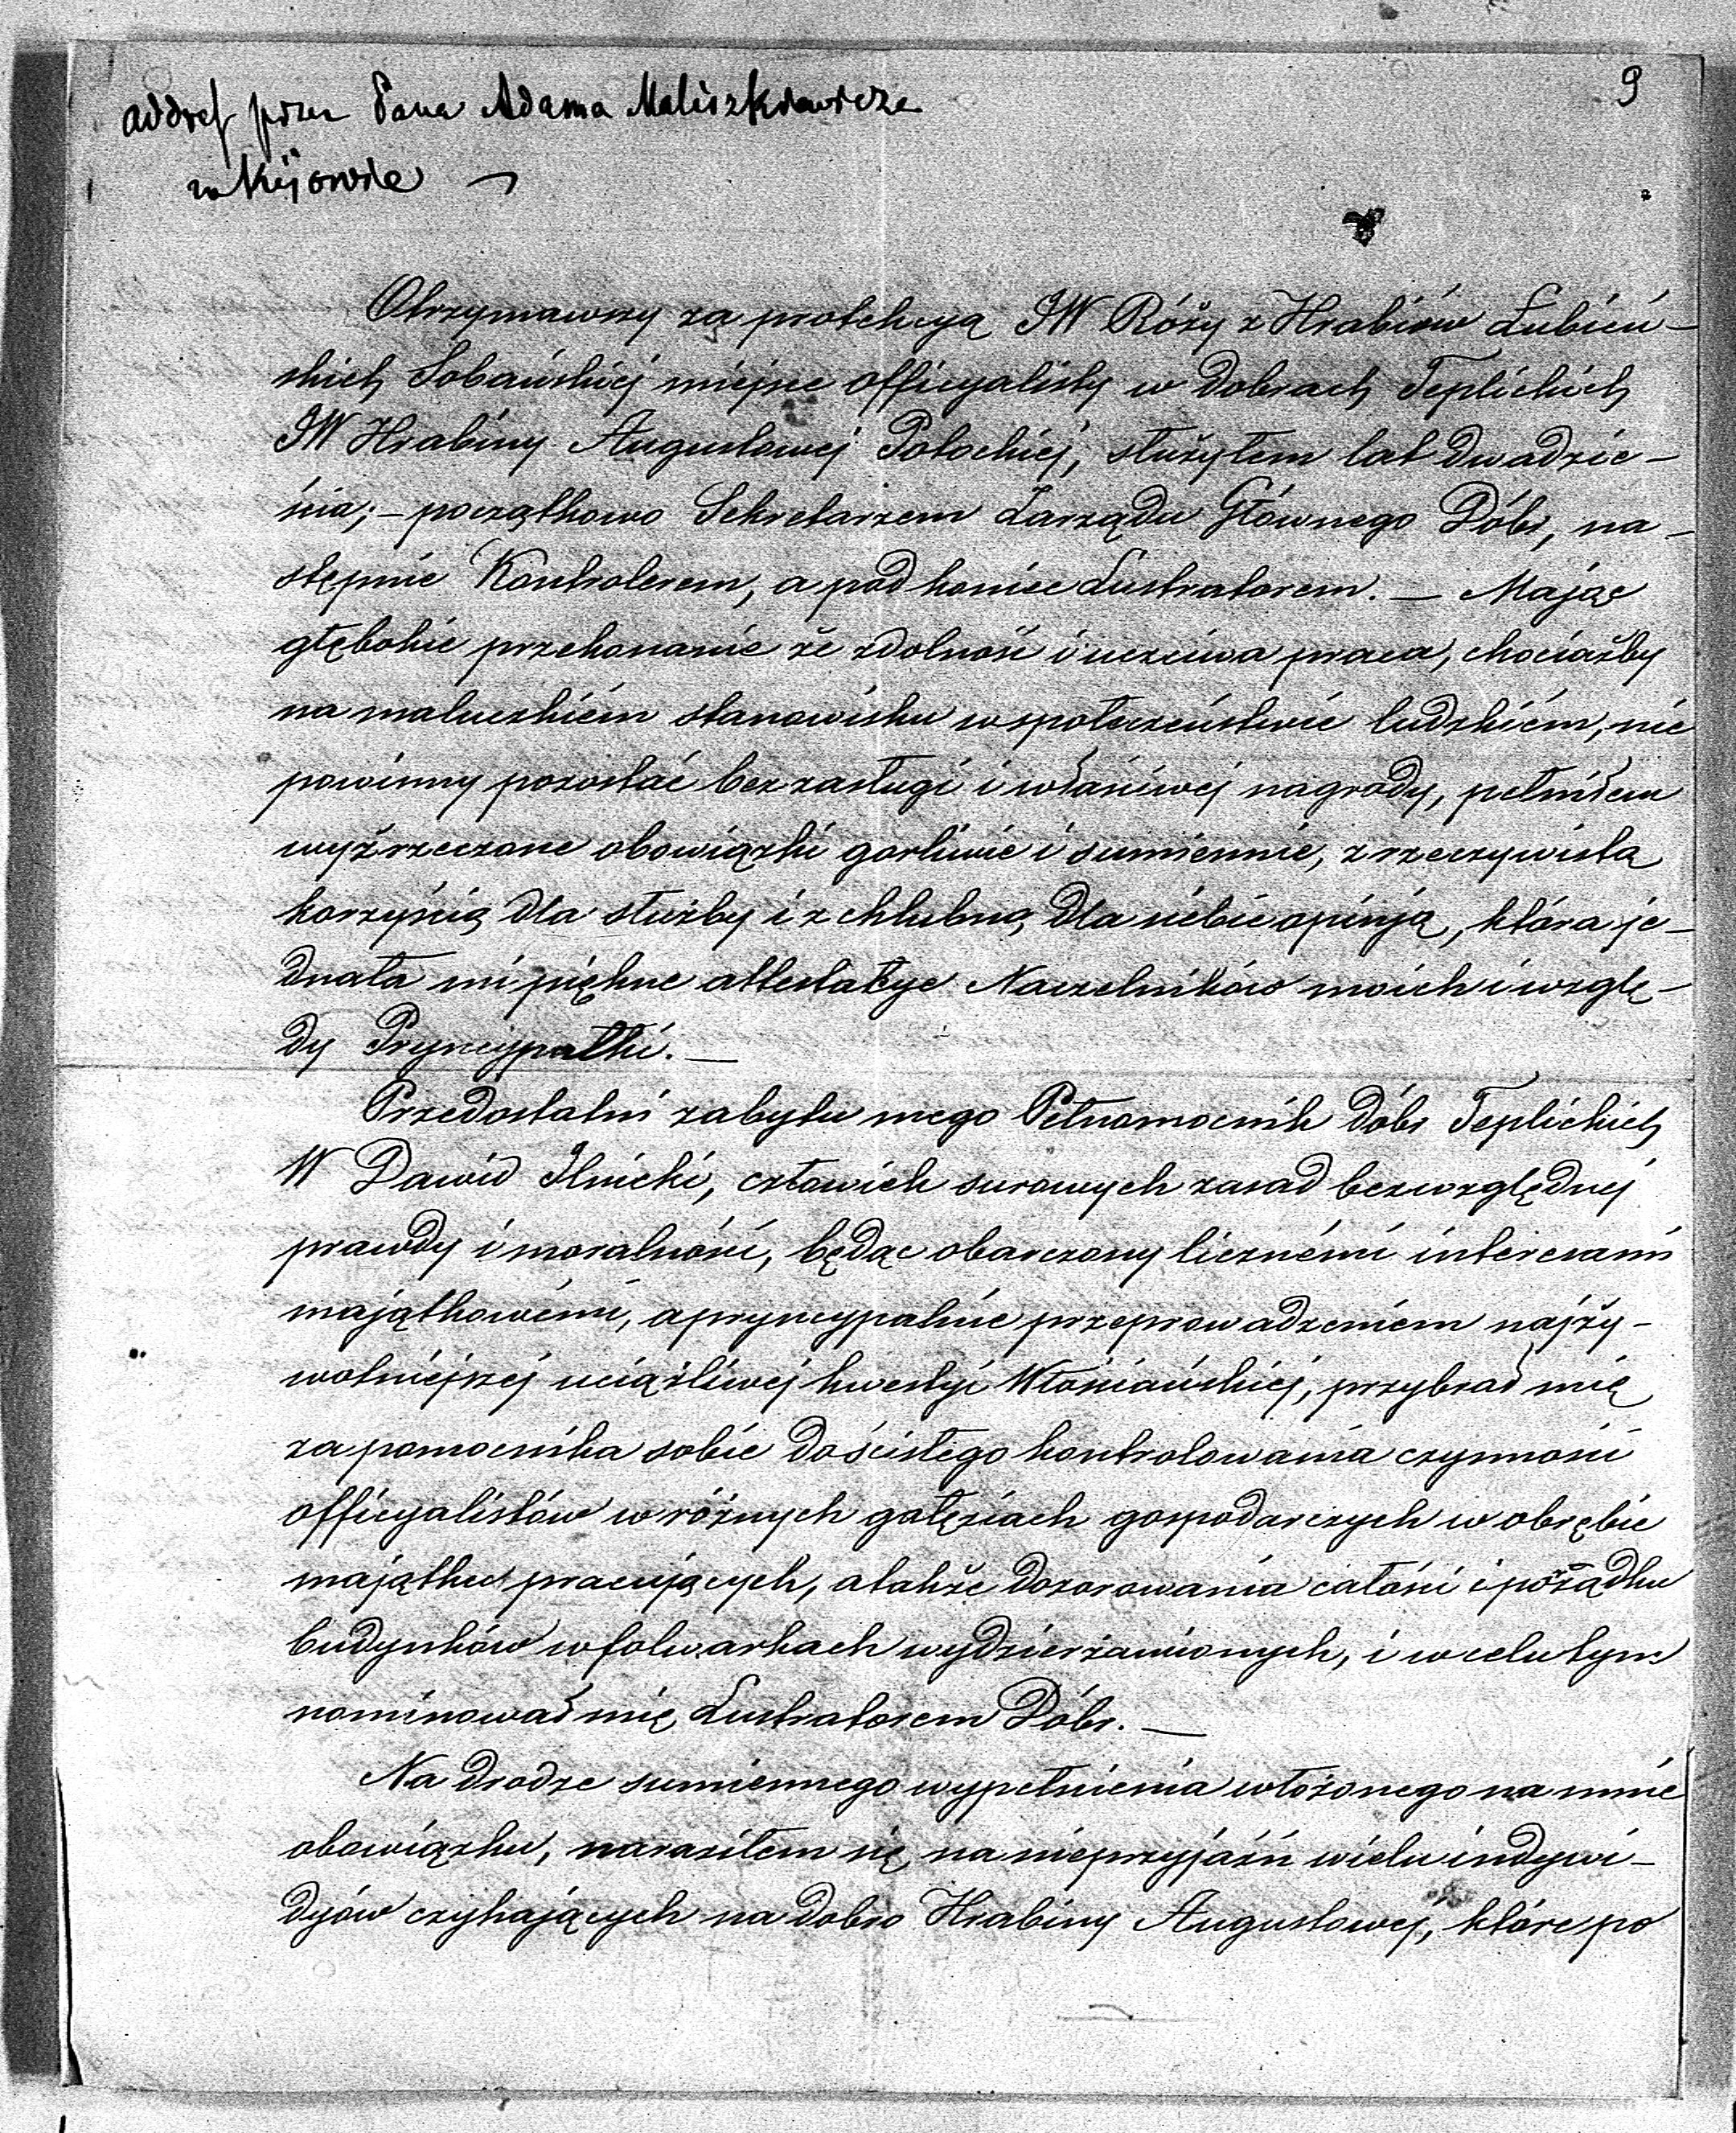 9
addres przez Pana Adama Maliszkiewicza
w Kijowie
Otrzymawszy za protekcyą JW Róży z Hrabiów Łubień-
skich Sobańskiej miejsce officyalisty w dobrach Teplickich
JW Hrabiny Augustowej Potockiej, służyłem lat dwadzie-
ścia; – początkowo Sekretarzem Zarządu Głównego Dóbr, na-
stępnie Kontrolerem, a pod koniec Lustratorem. — Mając
głębokie przekonanie że zdolność i uczciwa praca, chociażby
na maluczkiém stanowisku w społeczeństwie ludzkiém, nie
powinny pozostać bez zasługi i właściwej nagrody, pełniłem
wyżrzeczone obowiązki gorliwie i sumiennie, z rzeczywistą
korzyścią dla służby i z chlubną dla siebie opinją, która je-
dnała mi piękne attestatye Naczelników moich i wzglę-
dy Pryncypałki. —
Przedostatni za bytu mego Pełnomocnik dóbr Teplickich
W Dawid Ilnicki, człowiek surowych zasad bezwzględnej
prawdy i moralności, będąc obarczony licznémi interesami
majątkowémi, a pryncypalnie przeprowadzeniem najży-
wotniejszej uciążliwej kwestyi Włościańskiej, przybrał mię
za pomocnika sobie do ścisłego kontrolowania czynności
officyalistów w różnych gałęziach gospodarczych w obrębie
majątku pracujących, a także dozorowania całości i porządku
budynków w folwarkach wydzierżawionych, i w celu tym
nominował mię Lustratorem Dóbr. —
Na drodze sumiennego wypełnienia włożonego na mnie
obowiązku, naraziłem się na nieprzyjaźń wielu indywi-
dyów czyhających na dobro Hrabiny Augustowej, które po